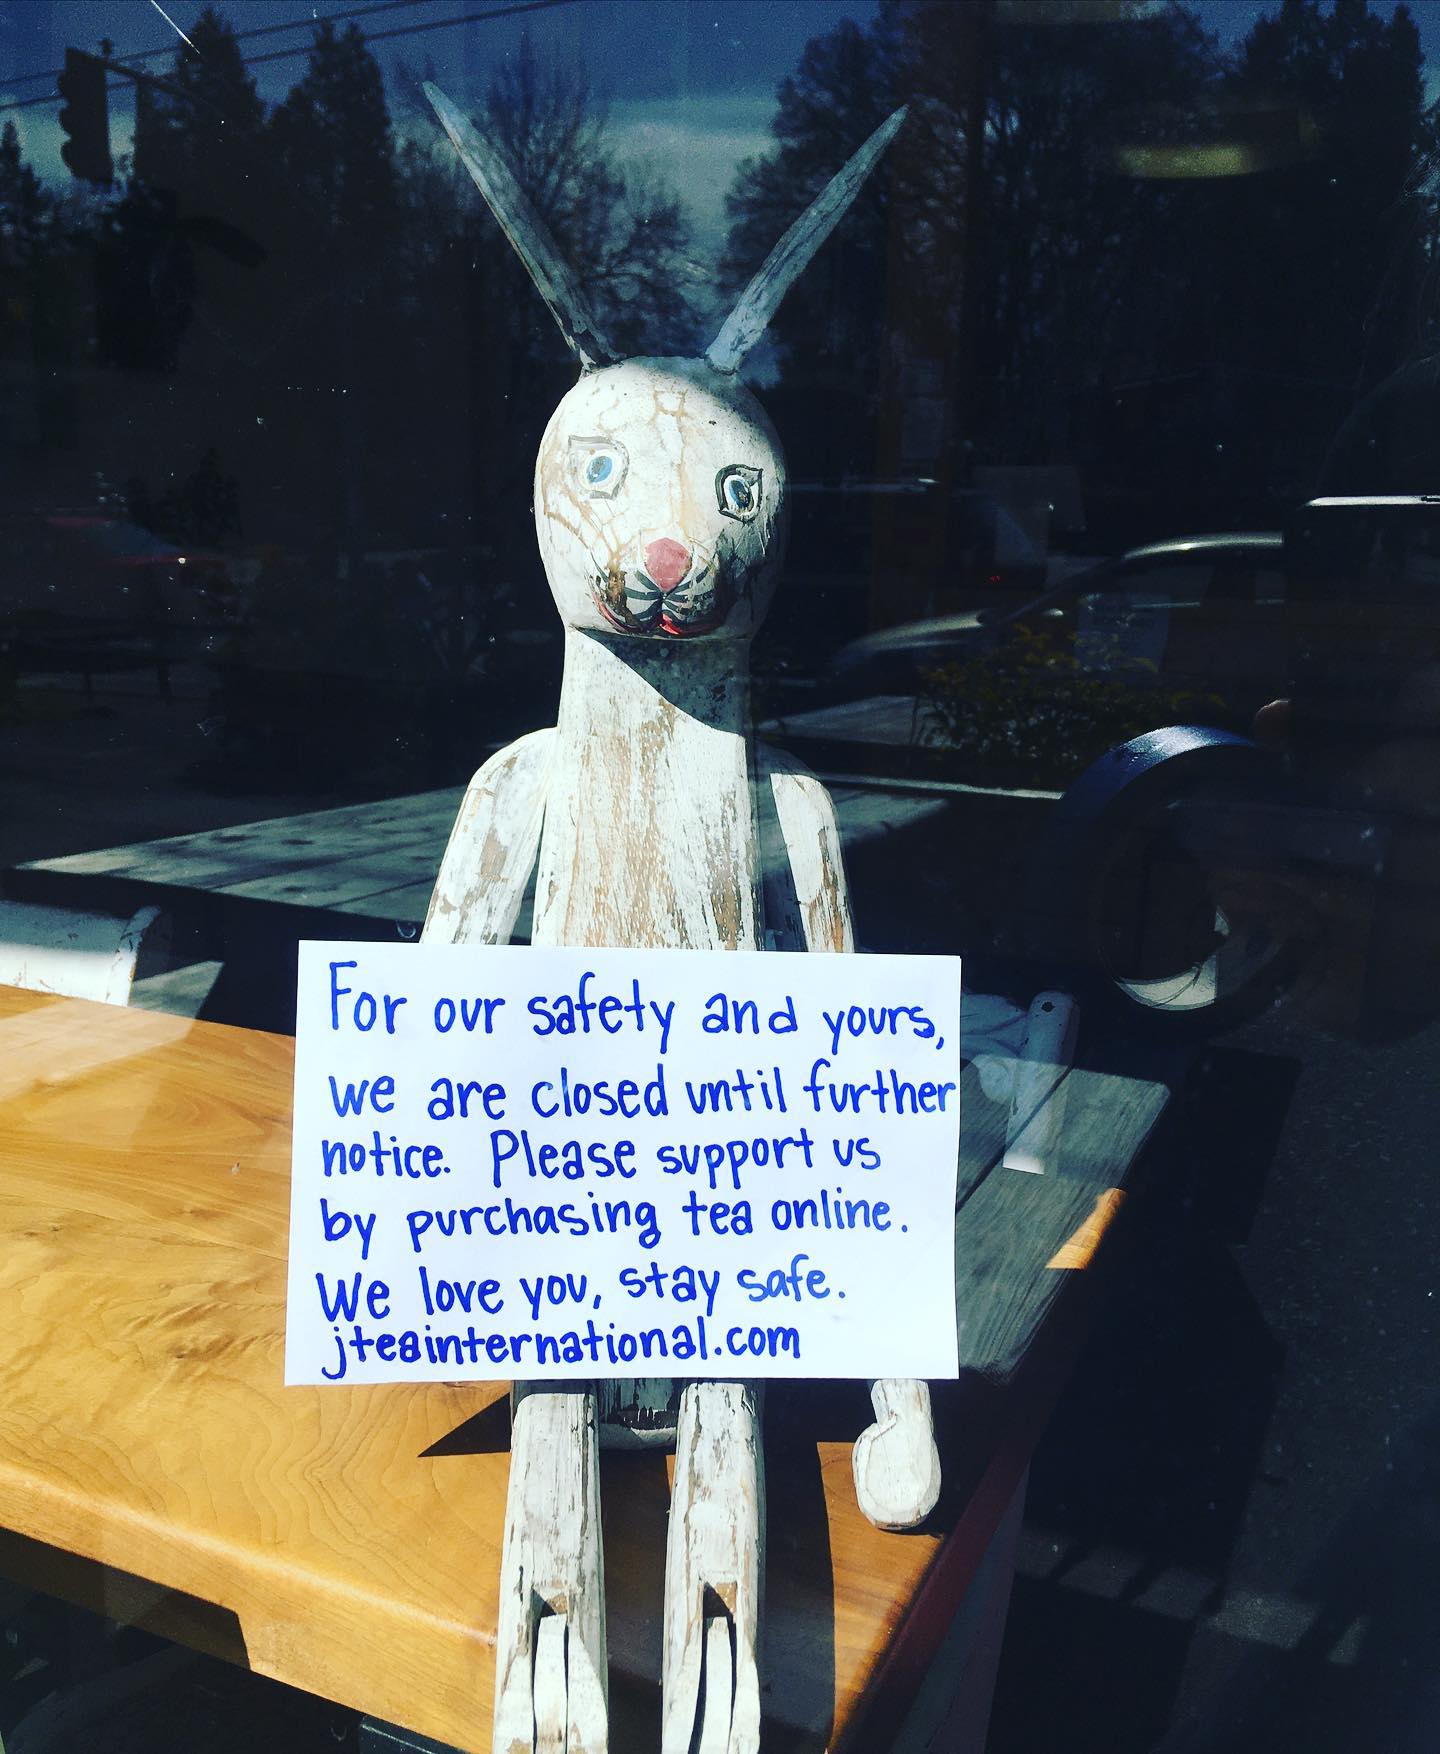 For our safety and yours,
we are closed until further
notice. Please support us
by purchasing tea online.
We love you, stay safe.
jteainternational.com